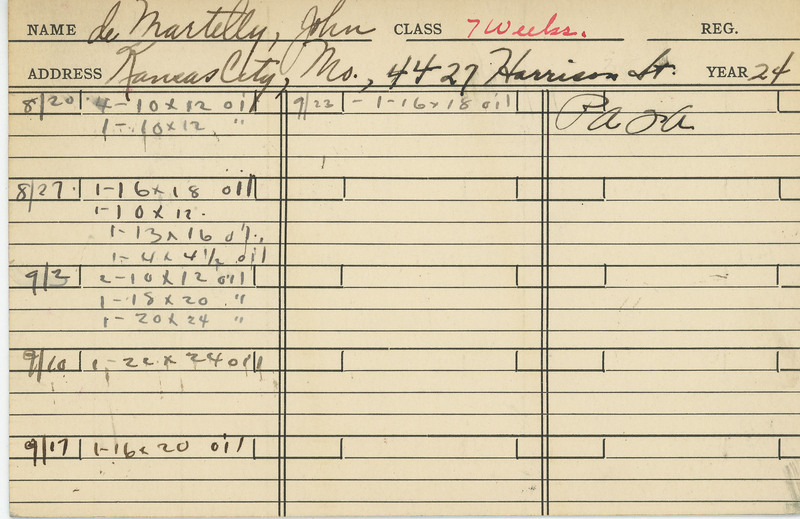 NAME de Martelly, John CLASS 7 Weeks. REG.
ADDRESS Kansas City, Mo., 4427 Harrison St. YEAR 24
8/20 4-10x12 oil
1-10x12 "
8/27 1-16x18 oil
1-10x12.
1-13x16 oil,
1-4x4½ oil
9/3 2-10x12 oil
1-18x20 "
1-20x24 "
9/10 1-22x24 oil
9/17 1-16x20 oil
9/23 -1-16x18 oil